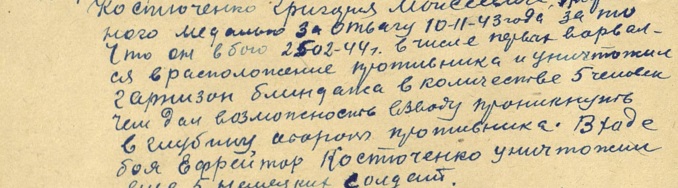 Костюченко Григория Моисеевича,
ного медалью за отвагу 10-11-43 года за то
что он в бою 25 02-44 г. в числе первых ворвал-
ся в расположение противника и уничтожил
гарнизон блиндажа в количестве 5 человек
чем дал возможность взводу проникнуть
в глубину обороны противника. В ходе
боя Ефрейтор Костюченко уничтожил
еще 5 немецких солдат.